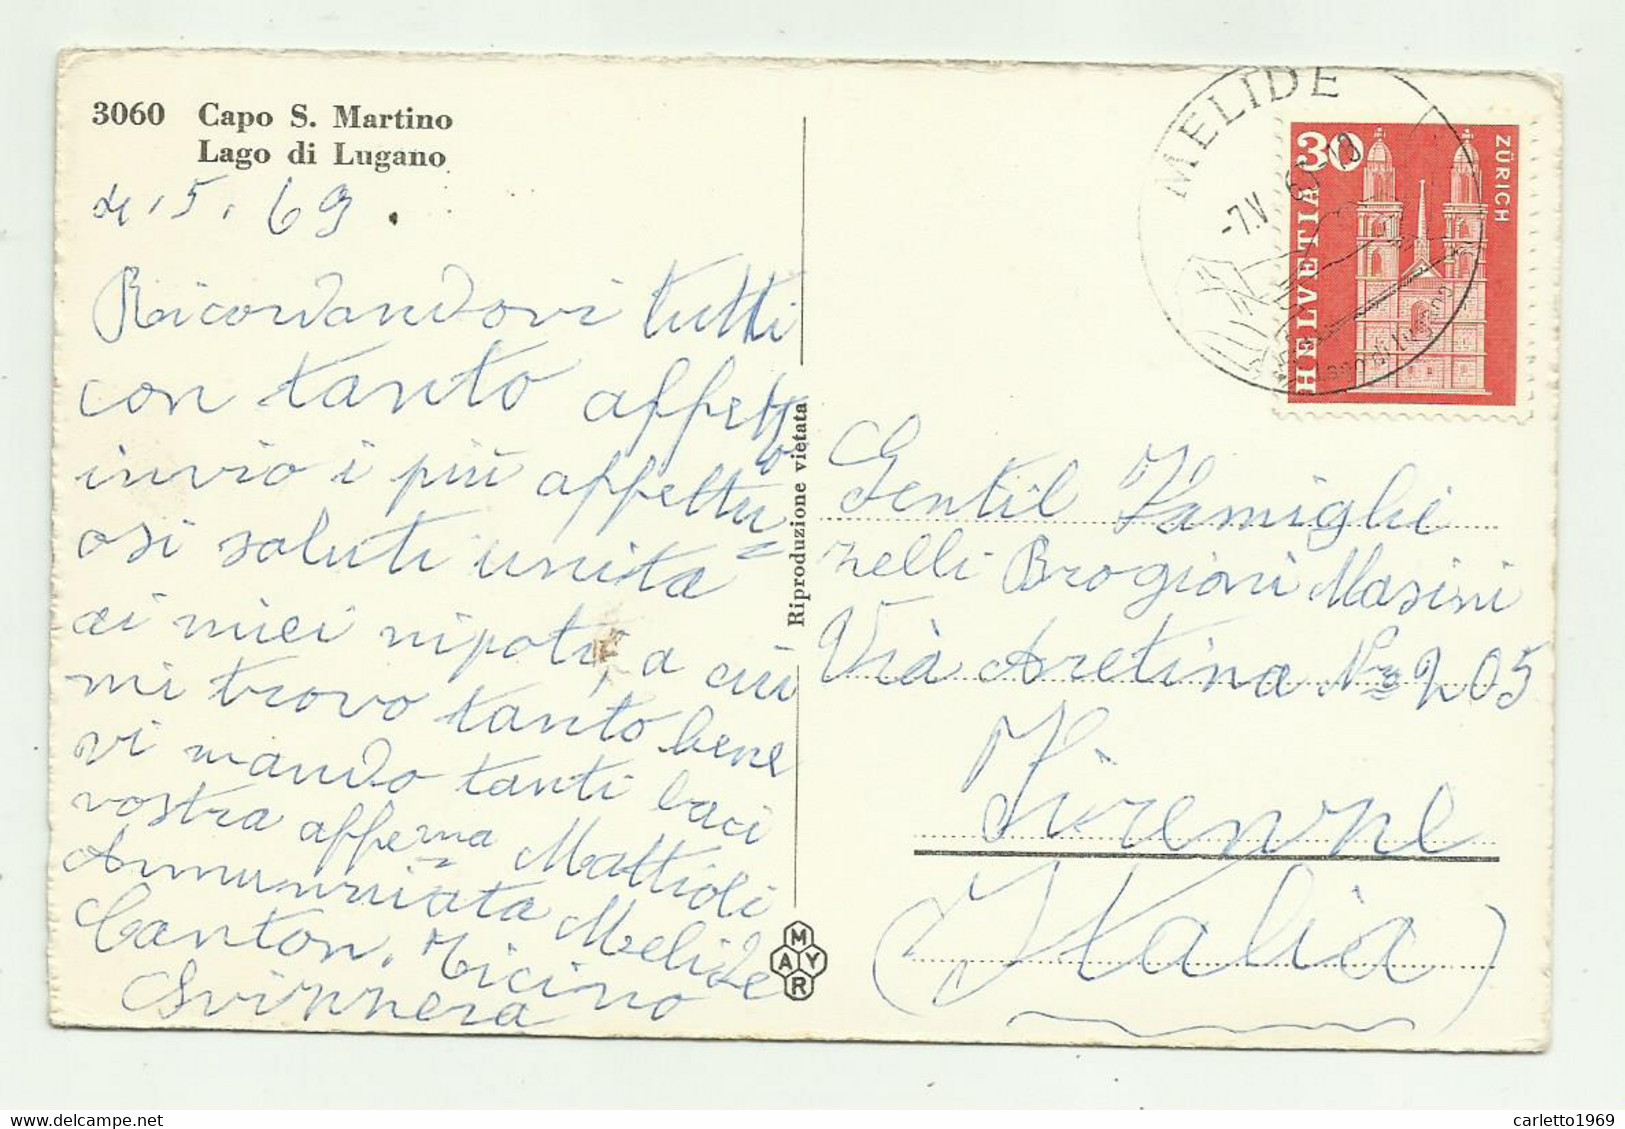 3060 Capo S. Martino
Lago di Lugano
4.5.69.
Ricordandovi tutti
con tanto affetto
invio i più affettu=
osi saluti unita
ai miei nipoti, a cui
mi trovo tanto bene
vi mando tanti baci
vostra affema Mattioli
Annunziata Melide
Canton. Ticino
Svizzera
Riproduzione vietata
MAYR
MELIDE
-7.V.
Lago di Lugano
30
HELVETIA
ZÜRICH
Gentil Famiglie
nelli Brogioni Masini
Via Aretina No 205
Firenze
(Italia)
carletto1969